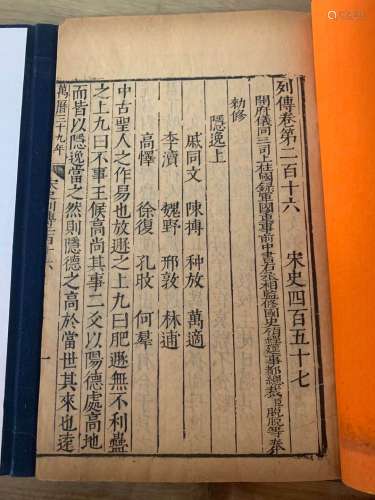 列傳卷第二百十六 宋史四百五十七
開府儀同三司上柱國錄軍國重事前中書右丞相監修國史領經筵事都總裁臣脫脫等奉
勅修
隱逸上
戚同文 陳摶 种放 萬適
李瀆 魏野 邢敦 林逋
高懌 徐復 孔旼 何羣
中古聖人之作易也於遯之上九曰肥遯無不利蠱
之上九曰不事王候高尚其事二爻以陽德處高地
而皆以隱逸當之然則隱德之高於當世其來也遠
萬曆二十九年
宋史列傳二百十六
一